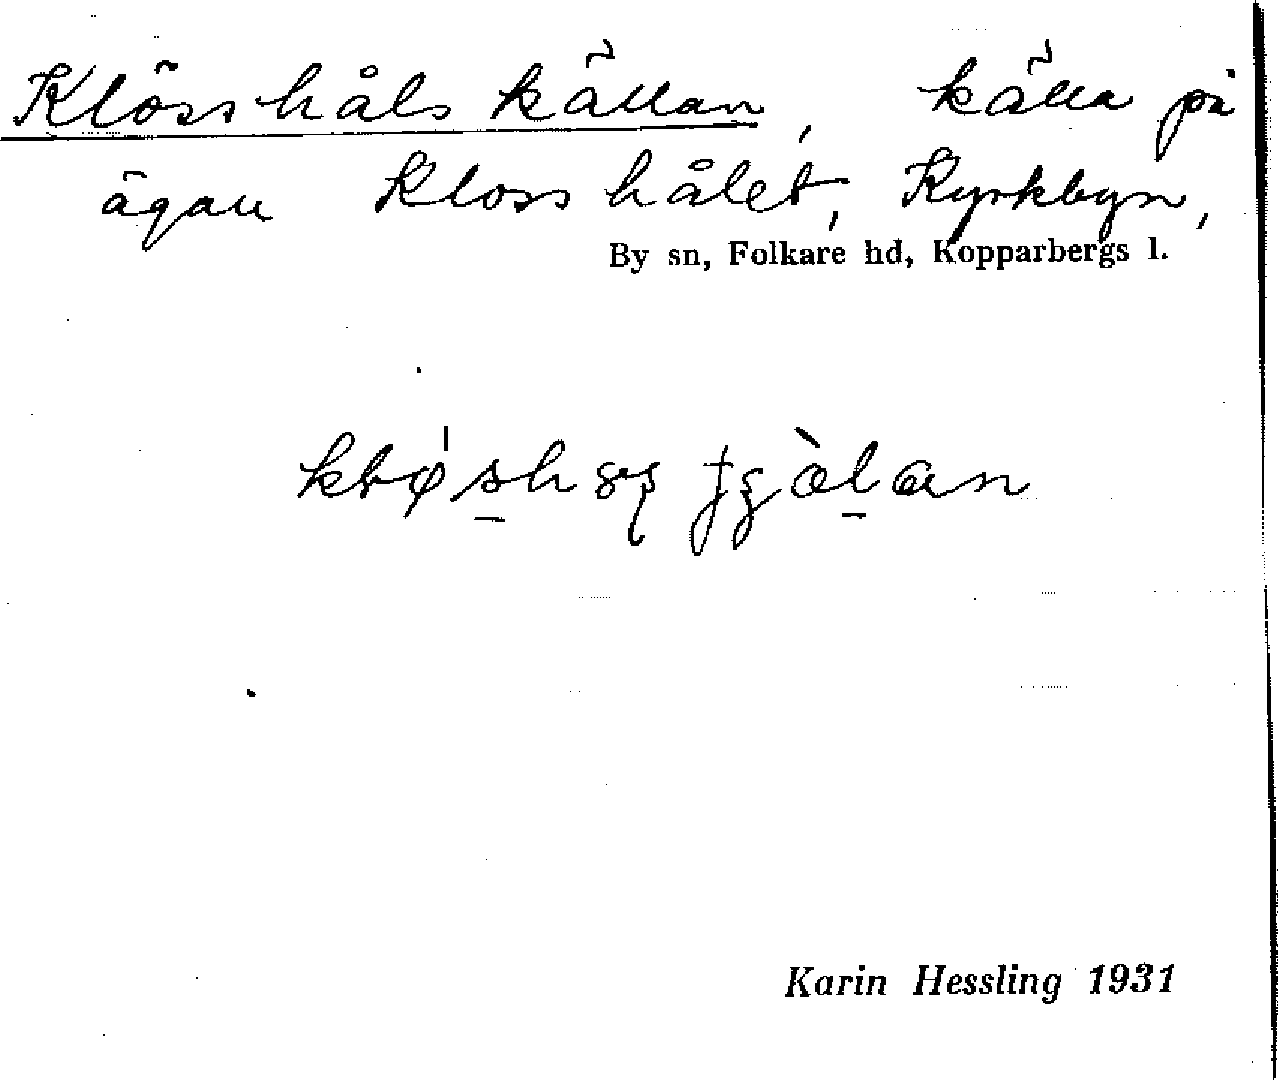 Klösshålskällan, källa på
ägan Klosshålet, Kyrkbyn,
By sn, Folkare hd, Kopparbergs l.
Karin Hessling 1931